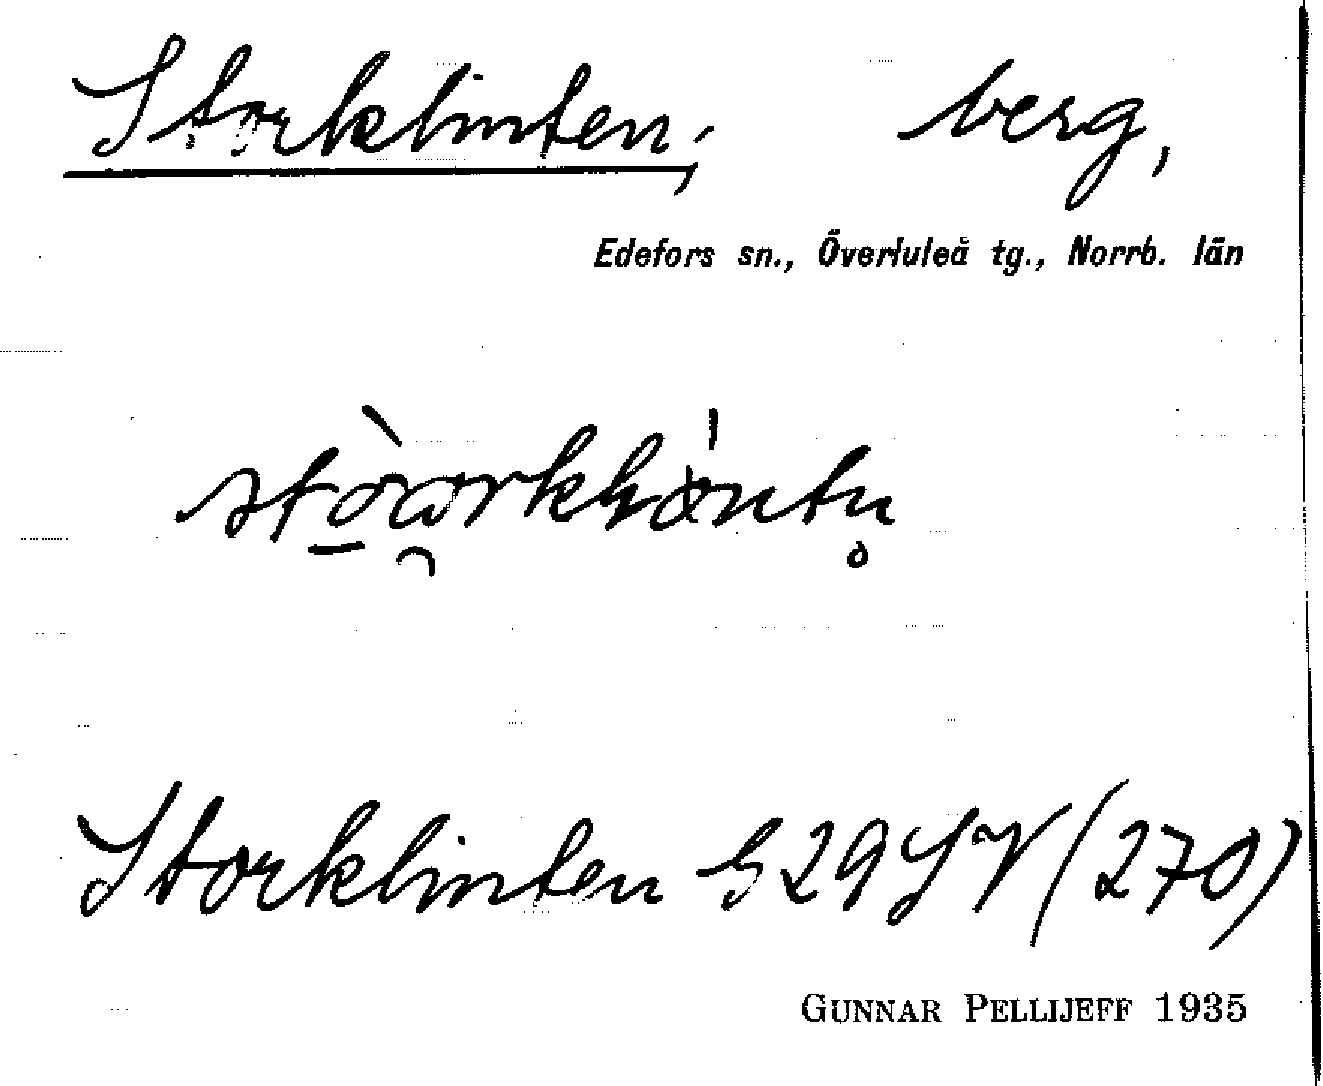 Storklinten, berg,
Edefors sn., Överluleå tg., Norrb. län
Storklinten G 29 SV (270)
GUNNAR PELLIJEFF 1935